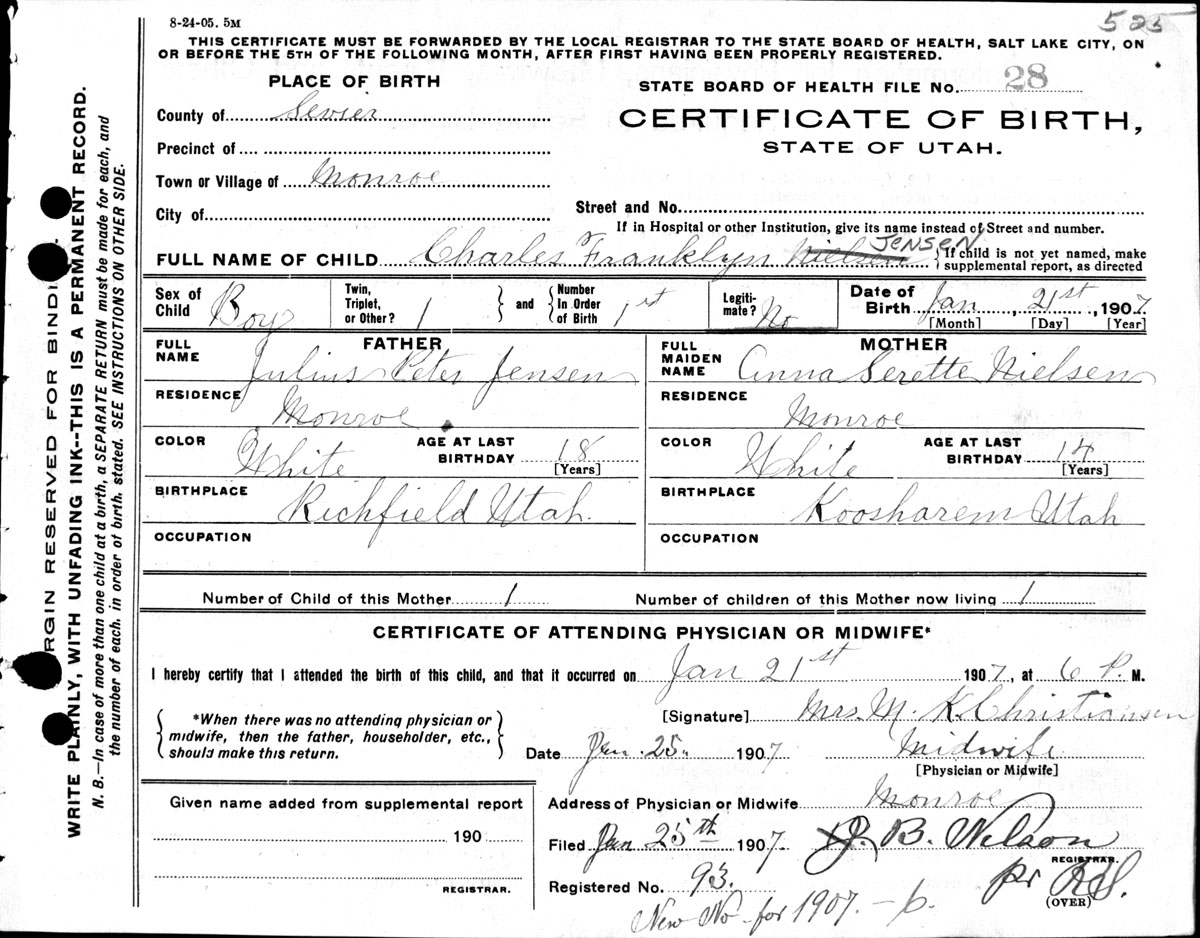 8-24-05. 5M
525
THIS CERTIFICATE MUST BE FORWARDED BY THE LOCAL REGISTRAR TO THE STATE BOARD OF HEALTH, SALT LAKE CITY, ON
OR BEFORE THE 5TH OF THE FOLLOWING MONTH, AFTER FIRST HAVING BEEN PROPERLY REGISTERED.
PLACE OF BIRTH
County of Sevier
Precinct of
Town or Village of Monroe
City of
STATE BOARD OF HEALTH FILE No. 28
CERTIFICATE OF BIRTH,
STATE OF UTAH.
Street and No.
If in Hospital or other Institution, give its name instead of Street and number.
FULL NAME OF CHILD Charles Franklyn Nielsen JENSEN
If child is not yet named, make
supplemental report, as directed
Sex of Child Boy
Twin, Triplet, or Other? 1
and
Number In Order of Birth 1st
Legiti-mate? No
Date of Birth Jan, 21st, 1907
[Month] [Day] [Year]
FATHER
FULL NAME Julius Peter Jensen
RESIDENCE Monroe
COLOR White AGE AT LAST BIRTHDAY 18
[Years]
BIRTHPLACE Richfield Utah.
OCCUPATION
MOTHER
FULL MAIDEN NAME Anna Serette Nielsen
RESIDENCE Monroe
COLOR White AGE AT LAST BIRTHDAY 14
[Years]
BIRTHPLACE Koosharem Utah
OCCUPATION
Number of Child of this Mother 1 Number of children of this Mother now living 1
CERTIFICATE OF ATTENDING PHYSICIAN OR MIDWIFE*
I hereby certify that I attended the birth of this child, and that it occurred on Jan 21st 1907, at 6 P. M.
*When there was no attending physician or
midwife, then the father, householder, etc.,
should make this return.
[Signature] Mrs. M. K. Christiansen
Date Jan. 25. 1907 Midwife
[Physician or Midwife]
Given name added from supplemental report
190
REGISTRAR.
Address of Physician or Midwife Monroe
Filed Jan 25th 1907 J. B. Nelson
REGISTRAR.
Registered No. 93. pr
(OVER)
New No for 1907. - p.
MARGIN RESERVED FOR BINDING.
WRITE PLAINLY, WITH UNFADING INK--THIS IS A PERMANENT RECORD.
N. B.—In case of more than one child at a birth, a SEPARATE RETURN must be made for each, and
the number of each, in order of birth, stated. SEE INSTRUCTIONS ON OTHER SIDE.